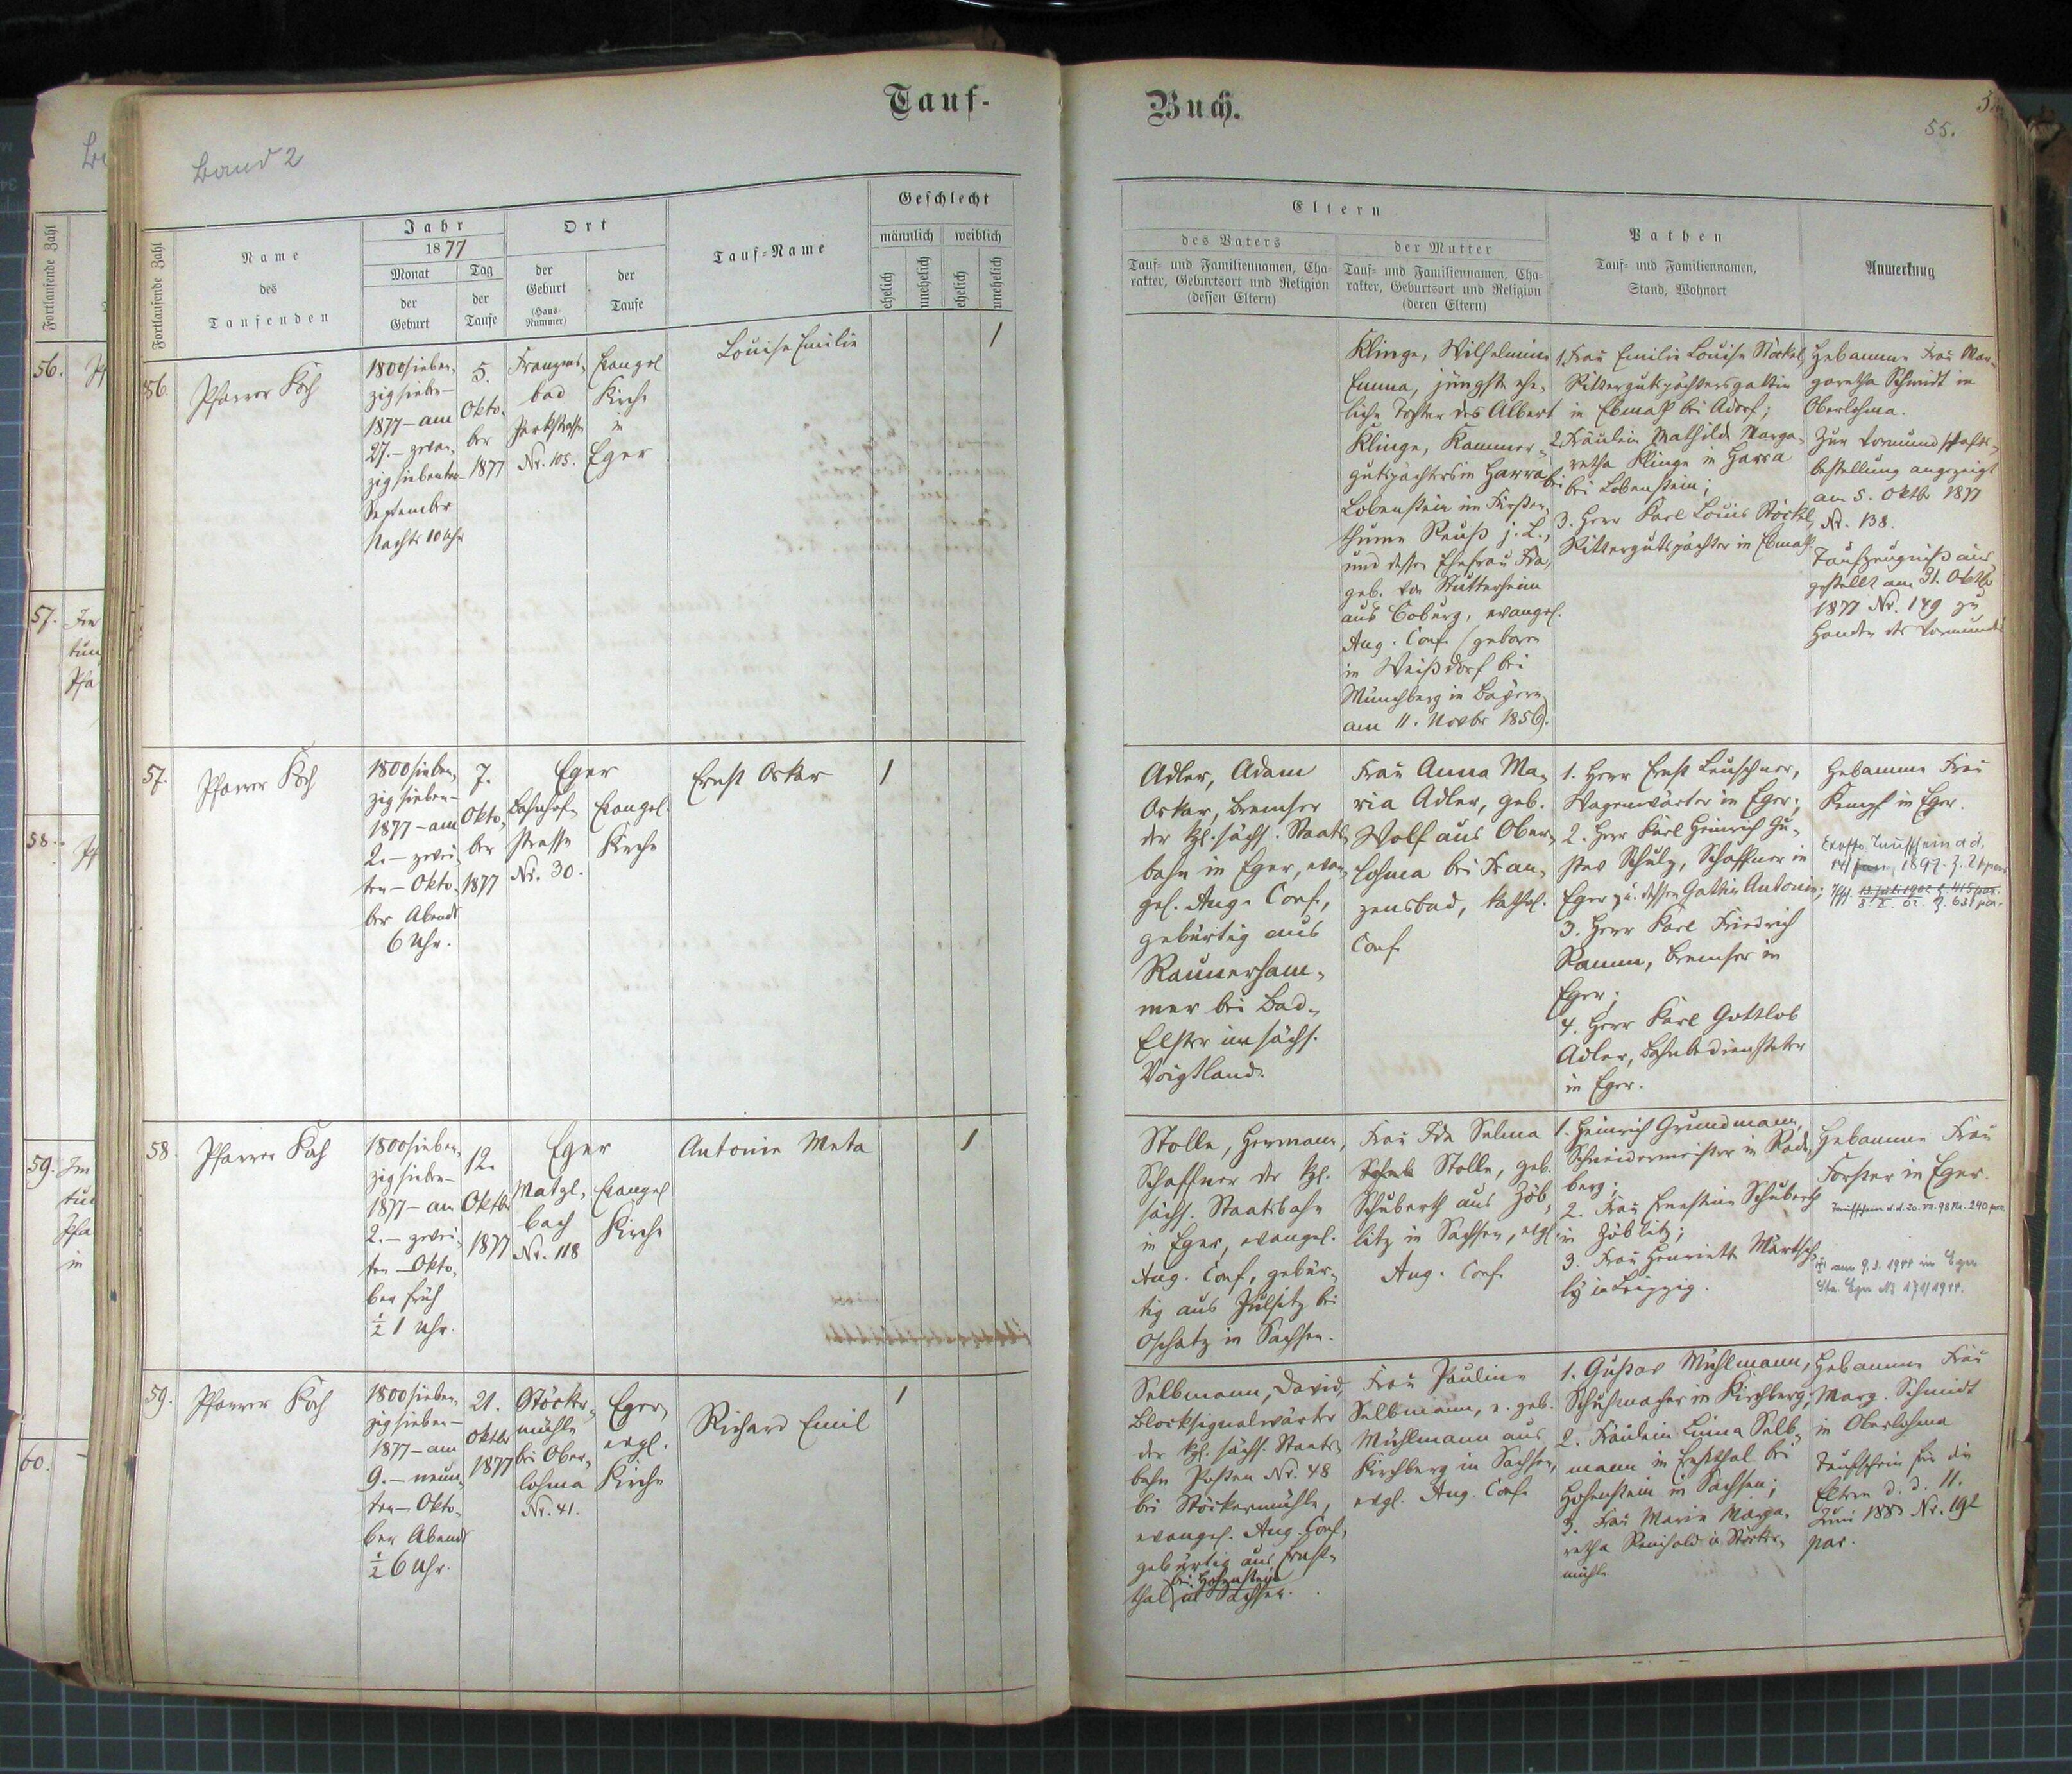 Tauf-
Buch.
55.
Band 2
Fortlaufende Zahl
Name
des
Taufenden
Jahr
1877
Monat
der
Geburt
Tag
der
Taufe
Ort
der
Geburt
(Haus-
Nummer)
der
Taufe
Tauf-Name
Geschlecht
männlich
weiblich
ehelich
unehelich
ehelich
unehelich
Eltern
des Vaters
Tauf- und Familiennamen, Cha-
rakter, Geburtsort und Religion
(dessen Eltern)
der Mutter
Tauf- und Familiennamen, Cha-
rakter, Geburtsort und Religion
(deren Eltern)
Pathen
Tauf- und Familiennamen,
Stand, Wohnort
Anmerkung
56.
Pfarrer Koch
1800sieben-
zig sieben-
1877 - am
27. - zwan-
zig siebenten
September
Nachts 10 Uhr
5.
Okto-
ber
1877
Franzens-
bad
Parkstraße
Nr. 105.
Evangel
Kirche
in
Eger
Louise Emilie
1
Klinge, Wilhelmine
Emma, jüngste ehe-
liche Tochter des Albert
Klinge, Kammer-
gutspächters in Harra bei
Lobenstein im Fürsten-
thume Reuß j. L.,
und dessen Ehefrau Ida,
geb. von Stutterheim
aus Coburg, evangel.
Aug. Conf. (geboren
in Weißdorf bei
Münchberg in Bayern
am 11. Novbr 1856).
1. Frau Emilie Louise Stöckel,
Rittergutspächtersgattin
in Ebmath bei Adorf;
2. Fräulein Mathilde Marga-
retha Klinge in Harra
bei Lobenstein;
3. Herr Karl Louis Stöckel,
Rittergutspächter in Ebmath
Hebamme Frau Mar-
garetha Schmidt in
Oberlohma.
Zur Vormundschafts-
bestellung angezeigt
am 5. Oktbr 1877
Nr. 138.
Taufzeugniß aus-
gestellt am 31. Oktbr
1877 Nr. 149 zu
Handen des Vormundes
57.
Pfarrer Koch
1800sieben-
zig sieben-
1877 - am
2. - zwei-
ten - Okto-
ber Abends
6 Uhr.
7.
Okto-
ber
1877
Eger
Bahnhof-
straße
Nr. 30.
Evangel.
Kirche
Ernst Oskar
1
Adler, Adam
Oskar, Bremser
der kgl. sächs. Staats-
bahn in Eger, evan-
gel. Aug. Conf.,
gebürtig aus
Raunerham-
mer bei Bad-
Elster im sächs.
Voigtland.
Frau Anna Ma-
ria Adler, geb.
Wolf aus Ober-
lohma bei Fran-
zensbad, kathol.
Conf.
1. Herr Ernst Leuschner,
Wagenwärter in Eger;
2. Herr Karl Heinrich Gu-
stav Schulz, Schaffner in
Eger u. dessen Gattin Antonie;
3. Herr Karl Friedrich
Ramm, Bremser in
Eger;
4. Herr Karl Gottlob
Adler, Bahnbediensteter
in Eger.
Hebamme Frau
Kempf in Eger.
58.
Pfarrer Koch
1800sieben-
zig sieben-
1877 - am
2. - zwei-
ten - Okto-
ber früh
½ 1 Uhr.
12.
Oktbr
1877
Eger
Matzl-
bach
Nr. 118
Evangel
Kirche
Antonie Meta
1
Stolle, Hermann,
Schaffner der kgl.
sächs. Staatsbahn
in Eger, evangel.
Aug. Conf., gebür-
tig aus Pulsitz bei
Oschatz in Sachsen.
Frau Ida Selma
Stolle, geb.
Schuberth aus Zöb-
litz in Sachsen, evgl.
Aug. Conf.
1. Heinrich Grundmann,
Schneidermeister in Rade-
berg;
2. Frau Ernestine Schuberth
in Zöblitz;
3. Frau Henriette
in Leipzig.
Hebamme Frau
Forster in Eger.
Taufschein d. d. 20. VII. 98 Nr. 240 par.
am 9.3.1944 in Eger
Sta. Eger Nr 171/1944.
59.
Pfarrer Koch
1800sieben-
zig sieben-
1877 - am
9. - neun-
ten - Okto-
ber Abends
½ 6 Uhr.
21.
Oktbr
1877
Stöcker-
mühle
bei Ober-
lohma
Nr. 41.
Eger,
evgl.
Kirche
Richard Emil
1
Selbmann, David,
Blocksignalwärter
der kgl. sächs. Staats-
bahn Posten Nr. 48
bei Stöckermühle,
evangel. Aug. Conf.,
gebürtig aus Ernst-
bei Hohenstein
thal in Sachsen.
Frau Pauline
Selbmann, geb.
Mühlmann aus
Kirchberg in Sachsen,
evgl. Aug. Conf.
1. Gustav Mühlmann,
Schuhmacher in Kirchberg;
2. Fräulein Linna Selb-
mann in Ernstthal bei
Hohenstein in Sachsen;
3. Frau Maria Marga-
retha Reinhold in Stöcker-
mühle
Hebamme Frau
Marg. Schmidt
in Oberlohma
Taufschein für die
Eltern d. d. 11.
Juni 1883 Nr. 192
par.